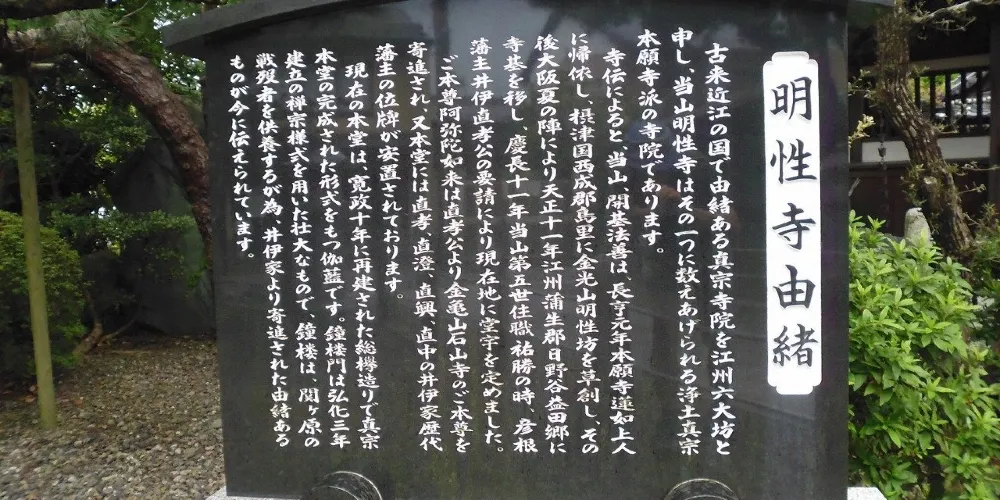 明性寺由緒
古来近江の国で由緒ある真宗寺院を江州六大坊と
申し、当山明性寺はその一つに数えあげられる浄土真宗
本願寺派の寺院であります。
寺伝によると、当山、開基法善は、長亨元年本願寺蓮如上人
に帰依し、摂津国西成郡島里に金光山明性坊を草創し、その
後大阪夏の陣により天正十一年江州蒲生郡日野谷益田郷に
寺基を移し、慶長十一年当山第五世住職祐勝の時、彦根
藩主井伊直孝公の要請により現在地に堂宇を定めました。
ご本尊阿弥陀如来は直孝公より金亀山石山寺のご本尊を
寄進され、又本堂には直孝、直澄、直興、直中の井伊家歴代
藩主の位牌が安置されております。
現在の本堂は、寛政十年に再建された総欅造りで真宗
本堂の完成された形式をもつ伽藍です。鐘楼門は弘化三年
建立の禅宗様式を用いた壮大なもので、鐘楼は、関ヶ原の
戦歿者を供養するが為、井伊家より寄進された由緒ある
ものが今に伝えられています。